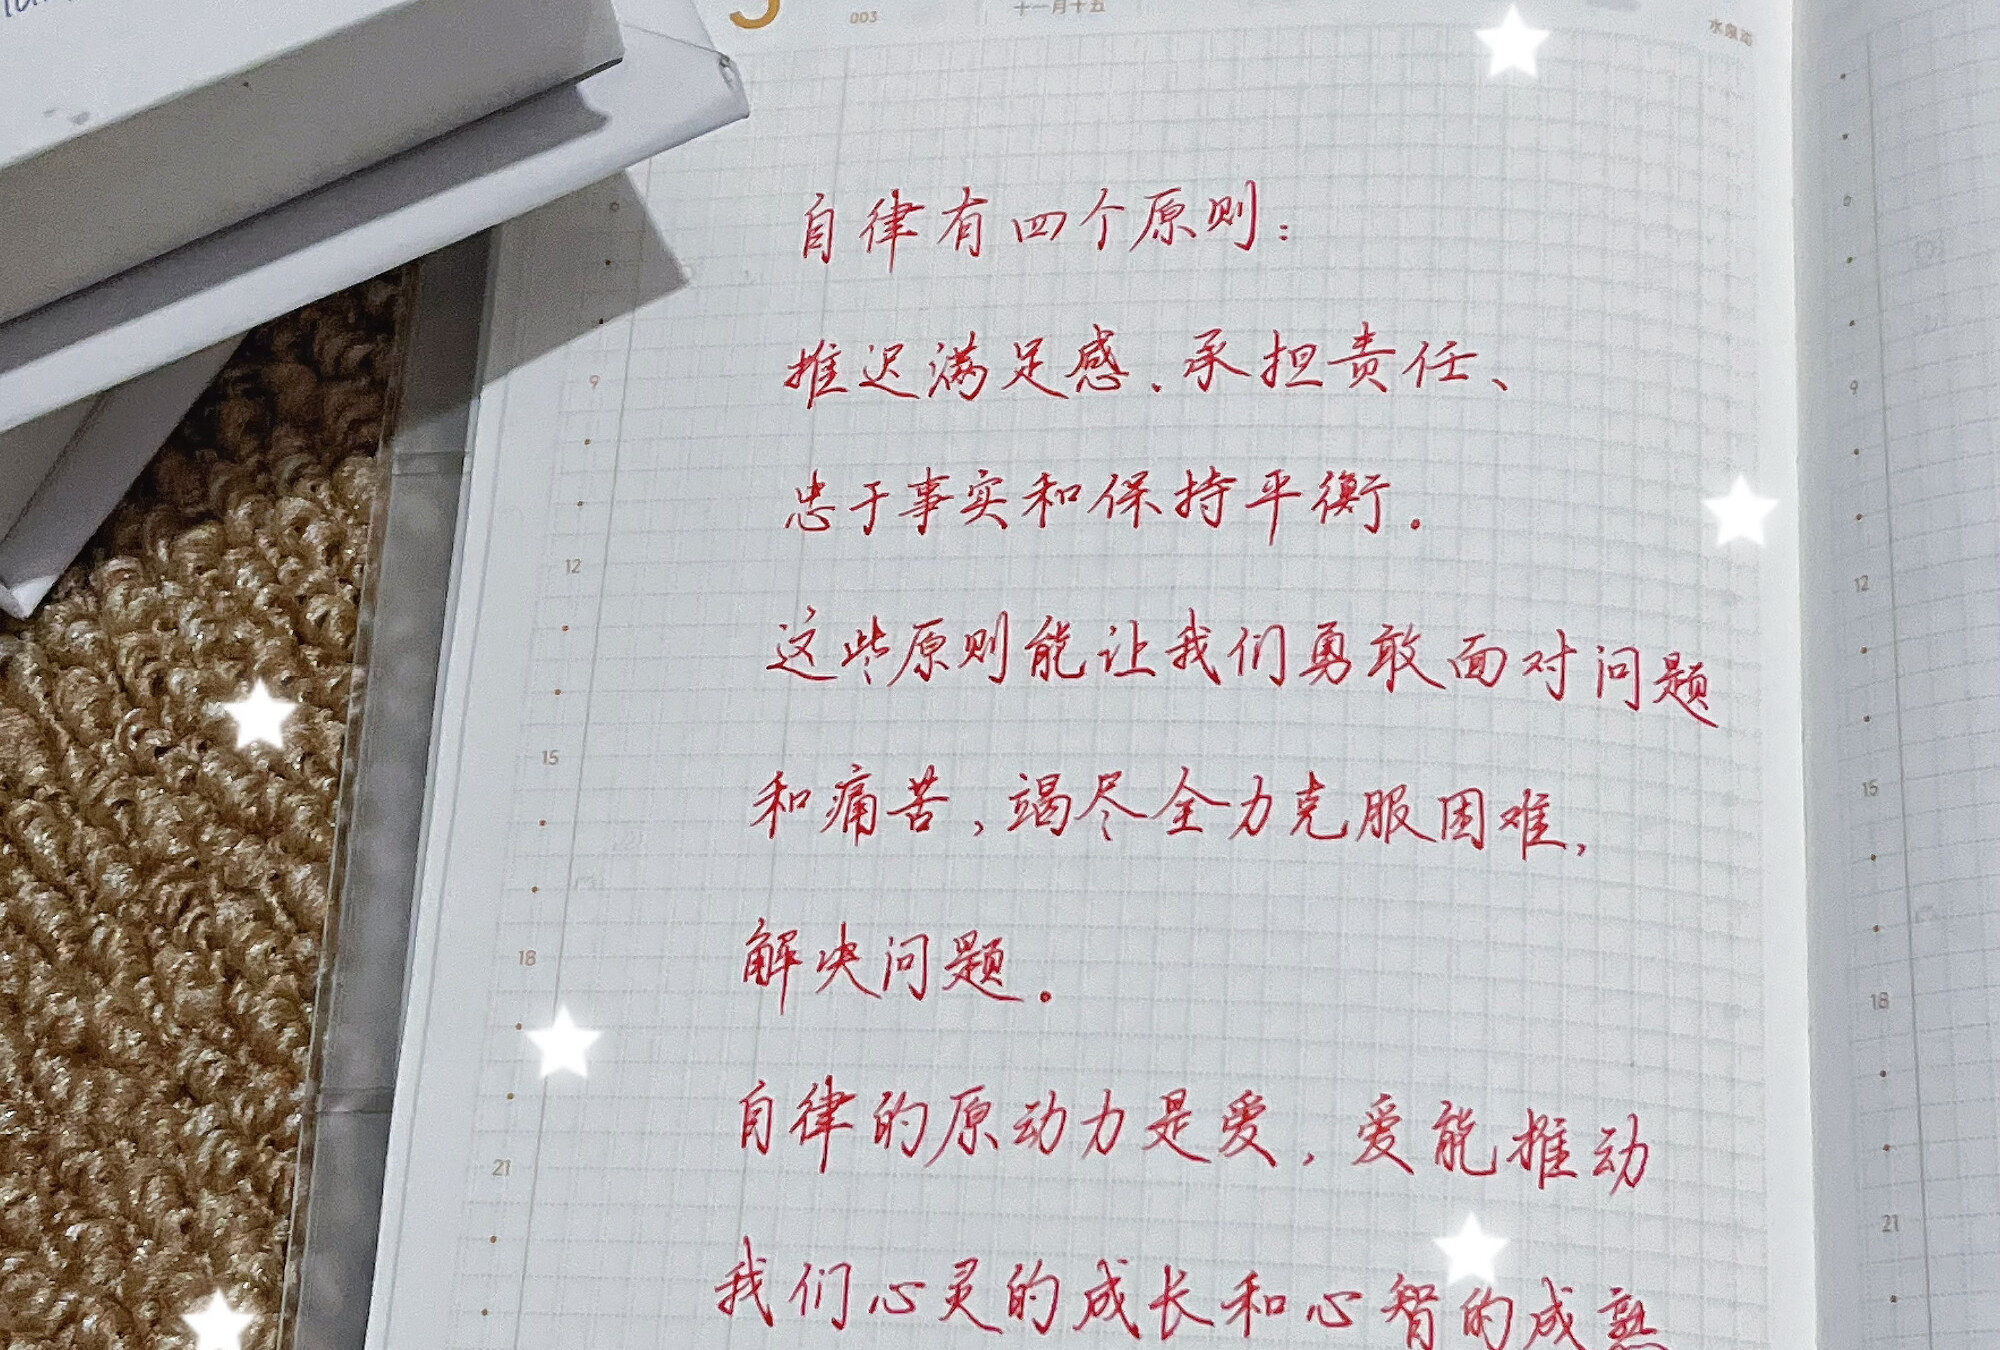 003
十一月十五
自律有四个原则：
推迟满足感、承担责任、
忠于事实和保持平衡。
这些原则能让我们勇敢面对问题
和痛苦，竭尽全力克服困难，
解决问题。
自律的原动力是爱，爱能推动
我们心灵的成长和心智的成熟
9
12
15
18
21
9
12
15
18
21